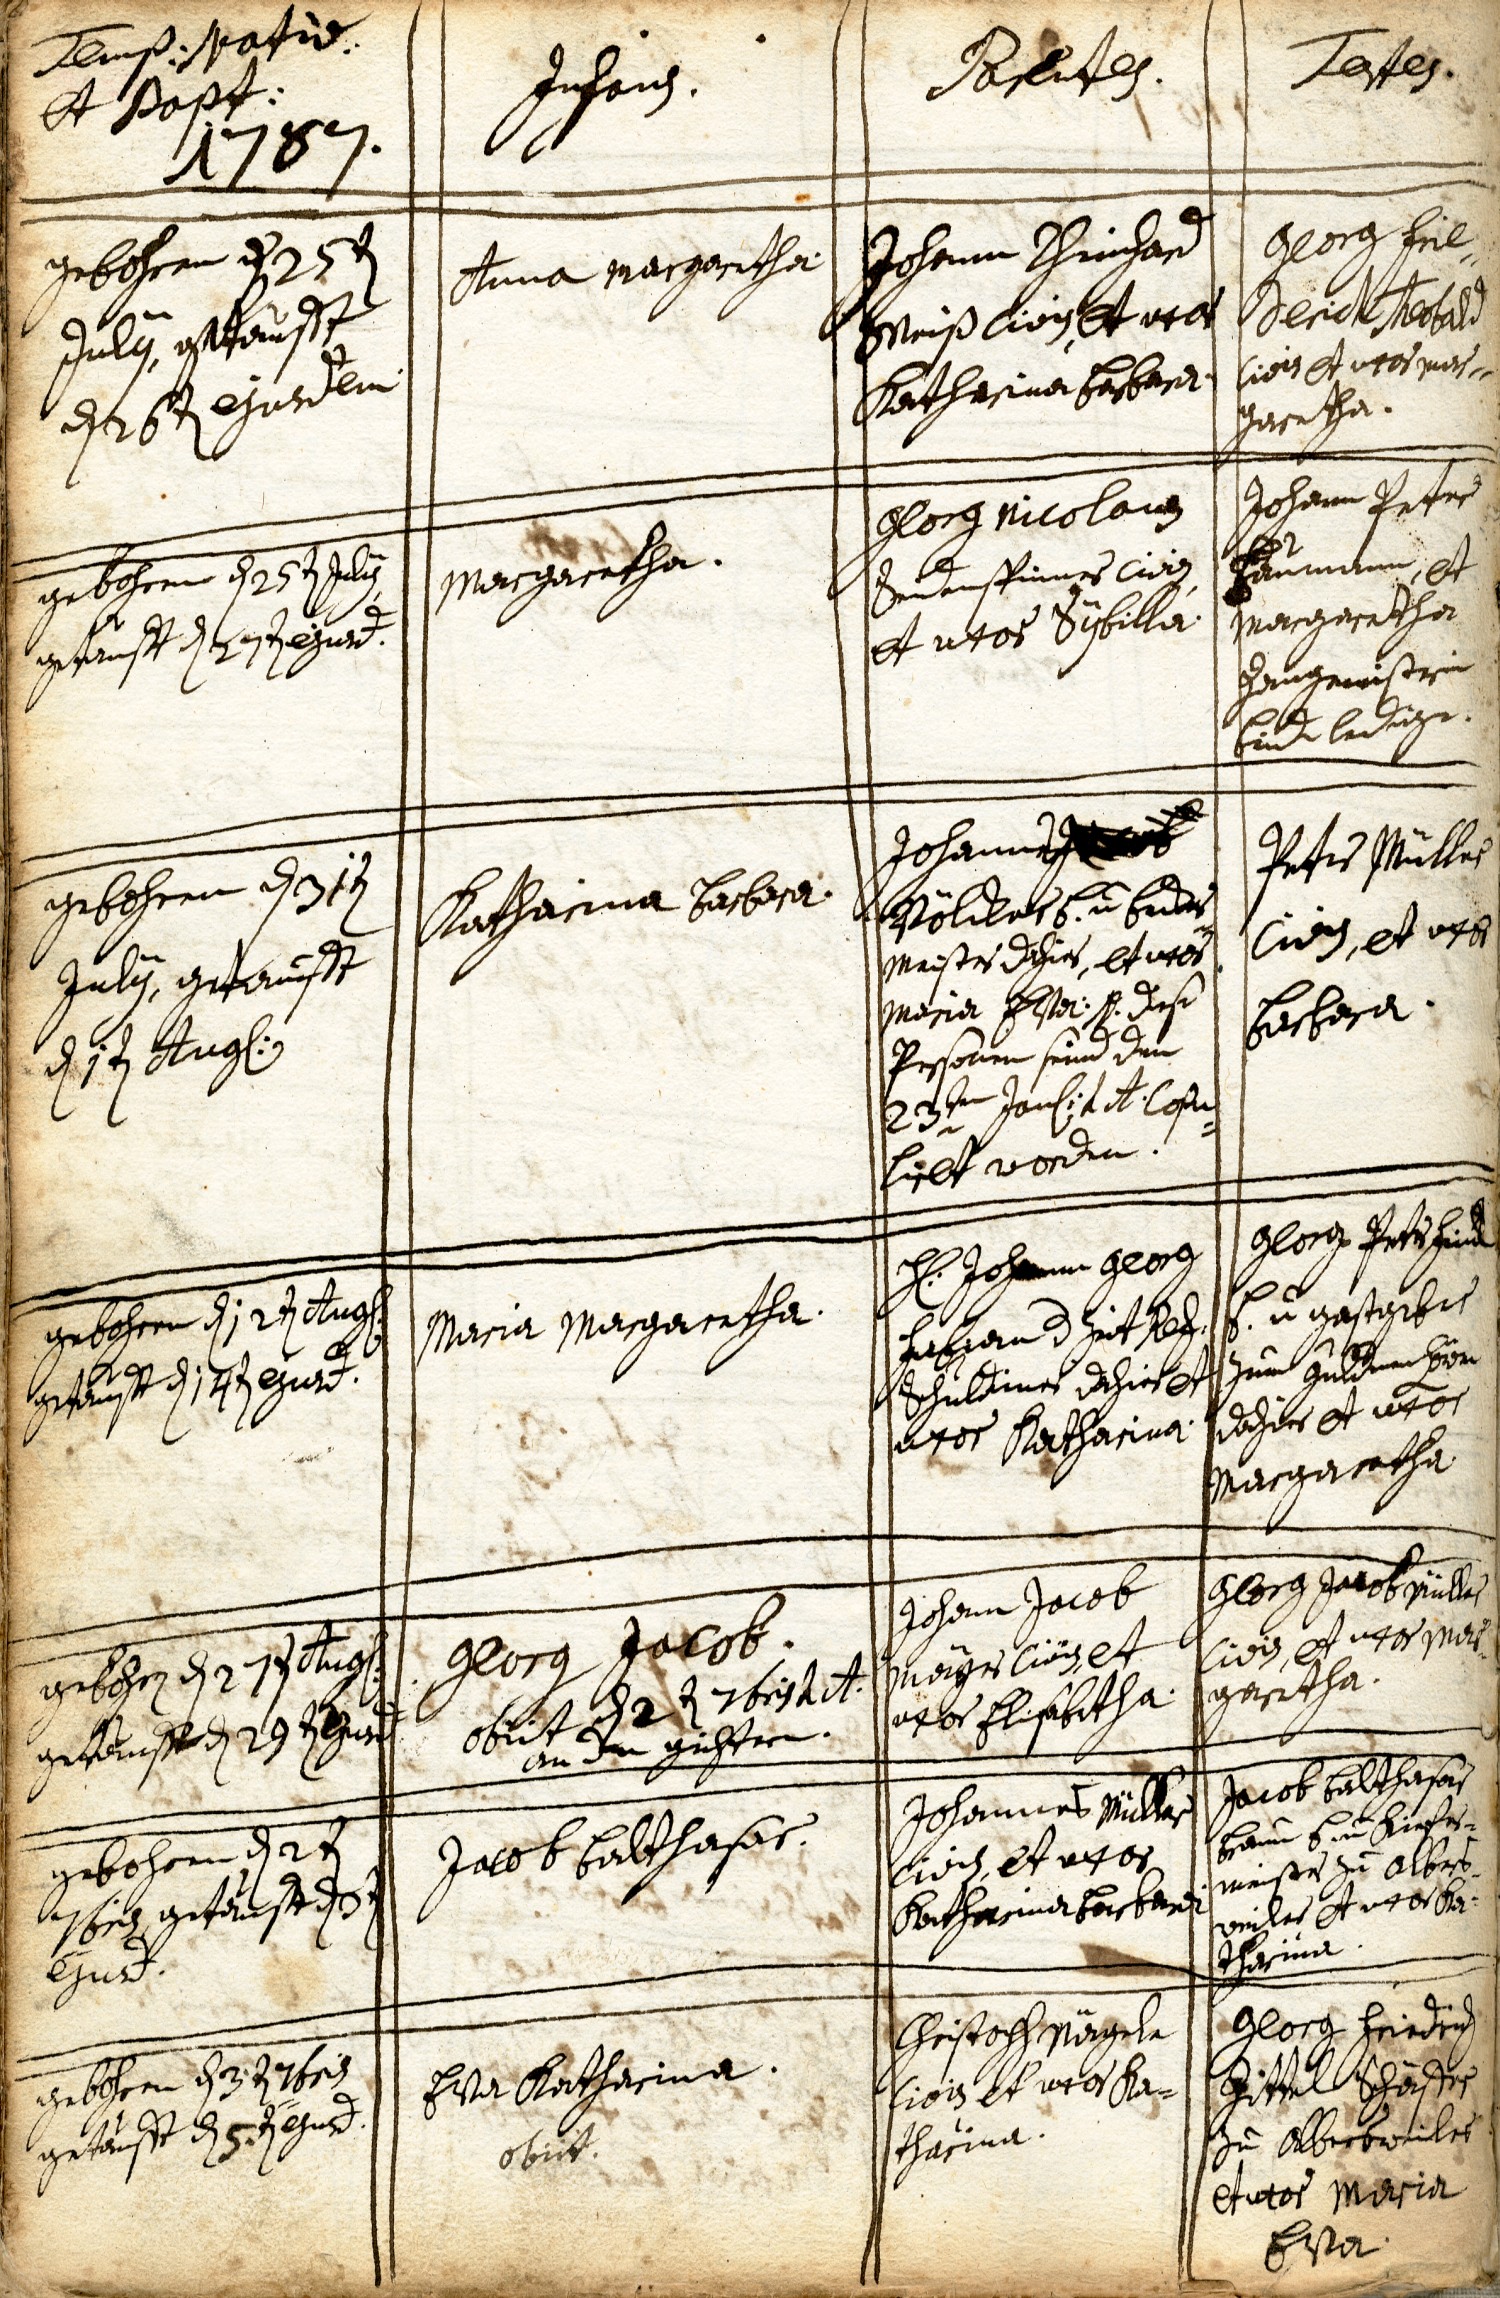 Temp: Nativ:
et Bapt:
1787.
Infans.
Parentes.
Testes.
gebohren d 25t
July, getaufft
d 26t ejusdem
Anna Margaretha
Johann Reinhard
Weiß Civis, et uxor
Katharina Barbara.
Georg Frie-
derich Theobald
Civis et uxor Mar-
garetha.
gebohren d 25t July,
getaufft d 27t ejusd.
Margaretha.
Georg Nicolaus
Seidenspinner Civis,
et uxor Sybilla.
Johann Peter
Baumann, et
Margaretha
beide ledige.
gebohren d 31t
July, getaufft
d 1t Aug:
Katharina Barbara.
Johannes
Völcker b. u
meister dahier, et uxor
Maria Eva. diese
Personen seind den
23ten Jan: h. a. Copu-
lirt worden.
Peter Müller
Civis, et uxor
Barbara.
gebohren d 12t Aug:
getaufft d 14t ejusd.
Maria Margaretha.
H: Johann Georg
d Zeit Ref.
Schuldiener dahier et
uxor Katharina.
Georg Peter
b. u gastgeber
zum güldenen
dahier et uxor
Margaretha
gebohren d 27t Aug:
getaufft d 29t ejusd
Georg Jacob.
obiit d 2t 7bris h. a.
an den gichtern.
Johann Jacob
Mayer Civis, et
uxor Elisabetha.
Georg Jacob Müller
Civis, et uxor Mar-
garetha.
gebohren d 2t
7bris, getaufft d 3t
ejusd.
Jacob Balthasar.
Johannes Müller
Civis, et uxor
Katharina Barbara
Jacob Balthasar
Braun b. u Kiefer-
meister zu Albers-
weiler et uxor Ka-
tharina.
gebohren d 3t 7bris
getaufft d 5t ejusd.
Eva Katharina.
obiit.
Christoph Nägele
Civis et uxor Ka-
tharina.
Georg Friedrich
Zittel Schäffer
zu Albersweiler
et uxor Maria
Eva.